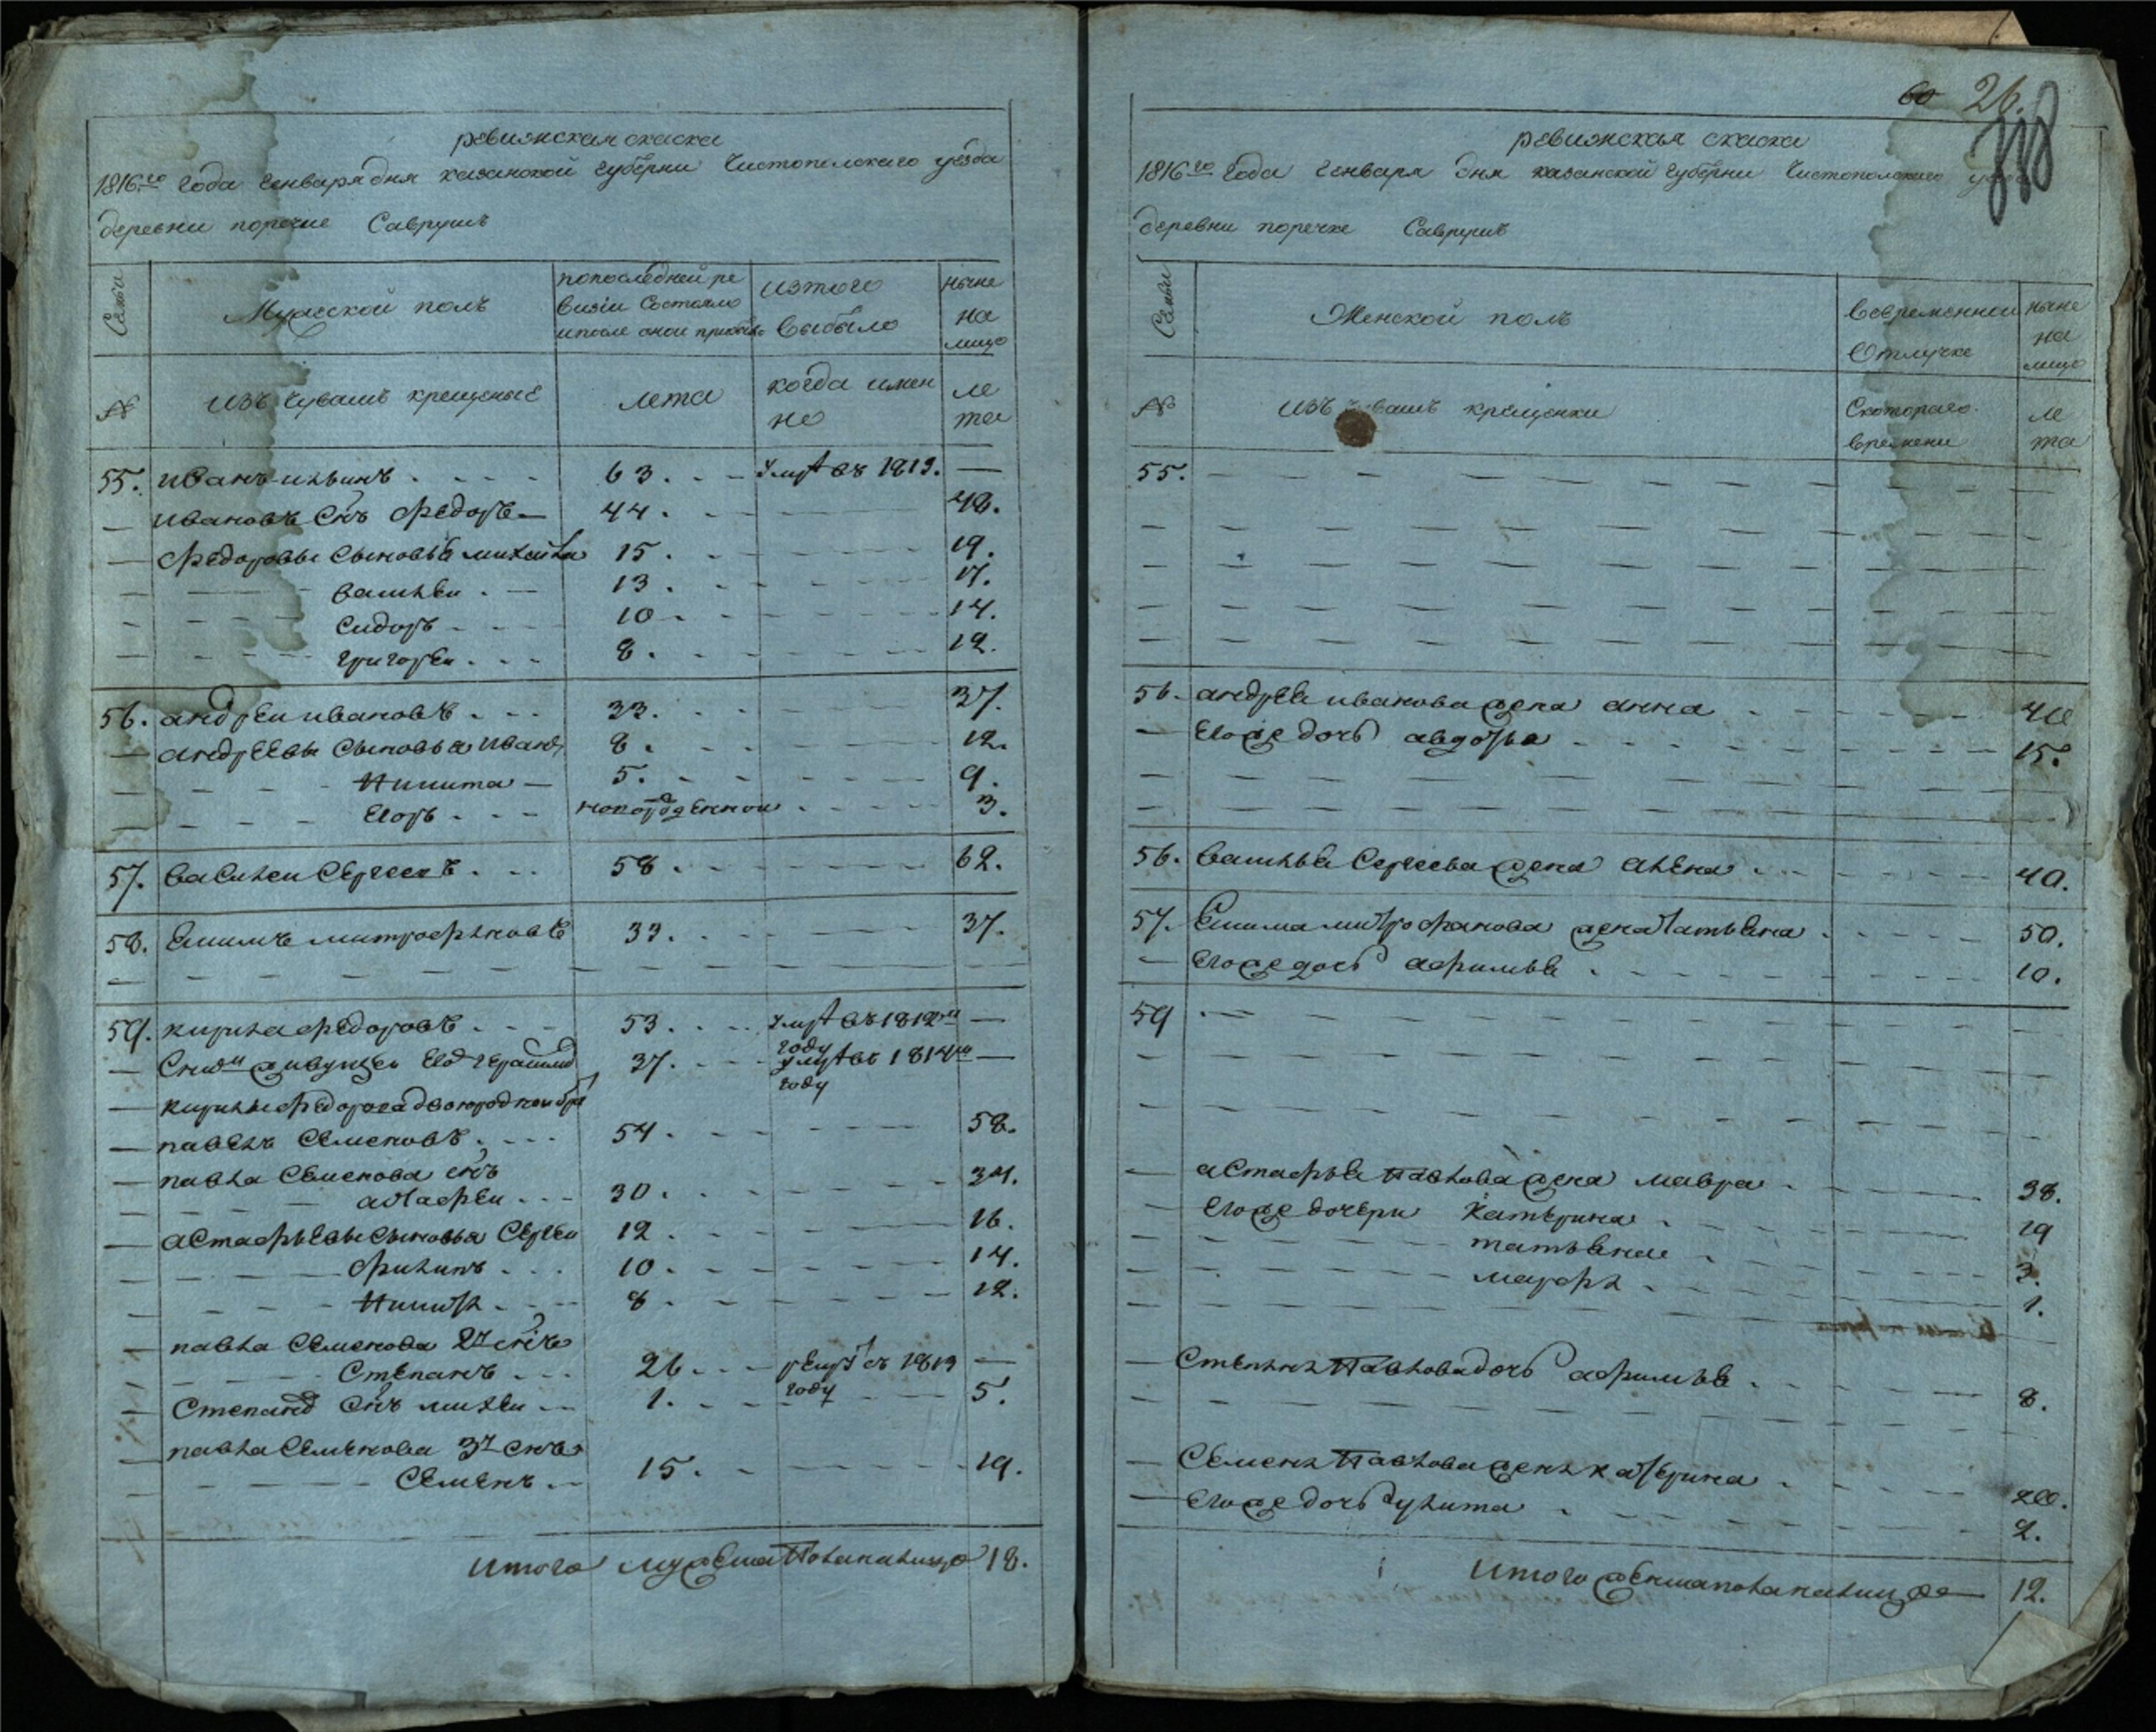 ревижская скаска
1816го года Генваря дня казанской губерни Чистополского уезда
деревни поречие Саврушъ
Семьи
Мужеской полъ
попоследней ре
визіи состояло
ипосле оной прибыло
изтого
выбыло
ныне
на
лицо
№
изъ Чувашъ крещеные
лета
когда имен
но
ле
та
55. иванъ ильинъ 63. умре въ 1813. —
ивановъ снъ федоръ 44. 48.
федоровы сыновья михайла 15. 19.
василеи 13. 17.
сидоръ 10 14.
григореи 8. 12.
56. андреи ивановъ 33. 37.
андреевы сыновья иванъ 8. 12.
Никита 5. 9.
Егоръ новорожденнои 3.
57. василеи Сергеевъ 58. 62.
58. Екимъ митрофановъ 33. 37.
59. кирила федоровъ 53. умре въ 1812м —
году
Снимъ живущеи Его герасимъ 37. умре въ 1814м —
году
кирилы федорова двоюроднои братъ
павелъ Семеновъ 54. 58.
павла Семенова снъ
астафеи 30. 34.
астафьевы сыновья Сергеи 12. 16.
филипъ 10. 14.
Никита 8. 12.
павла Семенова 2й снъ
Степанъ 26. рекрут съ 1813 —
году
Степана снъ михеи 1. 5.
павла Семенова 3й снъ
Семенъ 15. 19.
итого мужеска пола налицо 18.
60 26.
318
ревижская скаска
1816го года Генваря дня казанской губерни Чистополского уезда
деревни поречке Саврушъ
Семьи
Женской полъ
вовременнои
Отлучке
ныне
на
лицо
№
изъ чувашъ крещенки
Скотораго
времени
ле
та
55.
56. андрея иванова жена анна 40
Егоже дочь авдотья 15.
56. василья Сергеева жена алена 40.
57. Екима митрофанова жена татьяна 50.
Егоже дочь афимья 10.
59
астафья Павлова жена мавра 38.
Егоже дочери Катерина 19
татьяна 3.
марфа 1.
Степана Павлова дочь афимья 8.
Семена Павлова жена катерина 20.
Егоже дочь улита 2.
итого женска пола налицо 12.